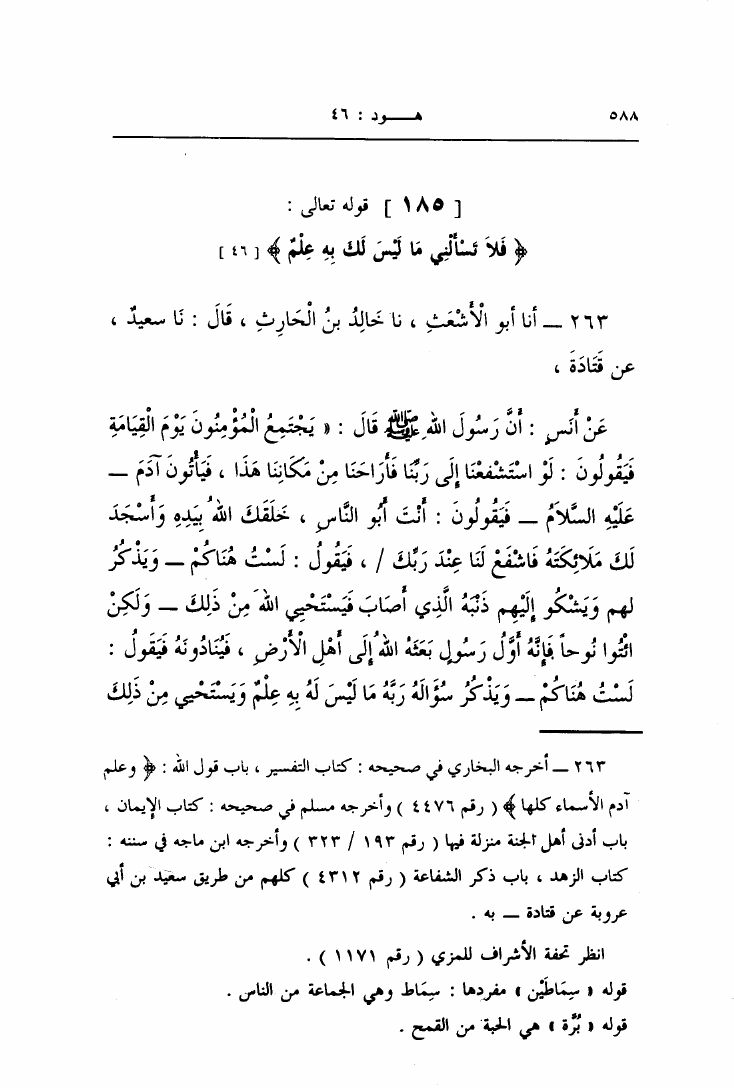 ٥٨٨ هـــود : ٤٦
[ ١٨٥ ] قوله تعالى :
﴿ فَلاَ تَسْأَلْنِي مَا لَيْسَ لَكَ بِهِ عِلْمٌ ﴾ [ ٤٦ ]
٢٦٣ ــ أنا أبو الْأَشْعَثِ ، نا خَالِدُ بنُ الْحَارِثِ ، قَالَ : نَا سعيدٌ ،
عن قَتَادَةَ ،
عَنْ أَنَسٍ : أَنَّ رَسُولَ اللهِ ﷺ قَالَ : « يَجْتَمِعُ الْمُؤْمِنُونَ يَوْمَ الْقِيَامَةِ
فَيَقُولُونَ : لَوْ اسْتَشْفَعْنَا إِلَى رَبِّنَا فَأَرَاحَنَا مِنْ مَكَانِنَا هَذَا ، فَيَأْتُونَ آدَمَ ــ
عَلَيْهِ السَّلاَمُ ــ فَيَقُولُونَ : أَنْتَ أَبُو النَّاسِ ، خَلَقَكَ اللهُ بِيَدِهِ وَأَسْجَدَ
لَكَ مَلاَئِكَتَهُ فَاشْفَعْ لَنَا عِنْدَ رَبِّكَ / ، فَيَقُولُ : لَسْتُ هُنَاكُمْ ــ وَيَذْكُرُ
لهم وَيَشْكُو إِلَيْهِم ذَنْبَهُ الَّذِي أَصَابَ فَيَسْتَحْيِي اللهَ مِنْ ذَلِكَ ــ وَلَكِنْ
ائْتُوا نُوحاً فَإِنَّهُ أَوَّلُ رَسُولٍ بَعَثَهُ اللهُ إِلَى أَهْلِ الْأَرْضِ ، فَيُنَادُونَهُ فَيَقُولُ :
لَسْتُ هُنَاكُمْ ــ وَيَذْكُرُ سُؤَالَهُ رَبَّهُ مَا لَيْسَ لَهُ بِهِ عِلْمٌ وَيَسْتَحْيِي مِنْ ذَلِكَ
٢٦٣ ــ أخرجه البخاري في صحيحه : كتاب التفسير ، باب قول الله : ﴿ وعلم
آدم الأسماء كلها ﴾ ( رقم ٤٤٧٦ ) وأخرجه مسلم في صحيحه : كتاب الإيمان ،
باب أدنى أهل الجنة منزلة فيها ( رقم ١٩٣ / ٣٢٣ ) وأخرجه ابن ماجه في سننه :
كتاب الزهد ، باب ذكر الشفاعة ( رقم ٤٣١٢ ) كلهم من طريق سعيد بن أبي
عروبة عن قتادة ــ به .
انظر تحفة الأشراف للمزي ( رقم ١١٧١ ) .
قوله « سِمَاطَيْن » مفردها : سِمَاط وهي الجماعة من الناس .
قوله « بُرَّة » هي الحبة من القمح .